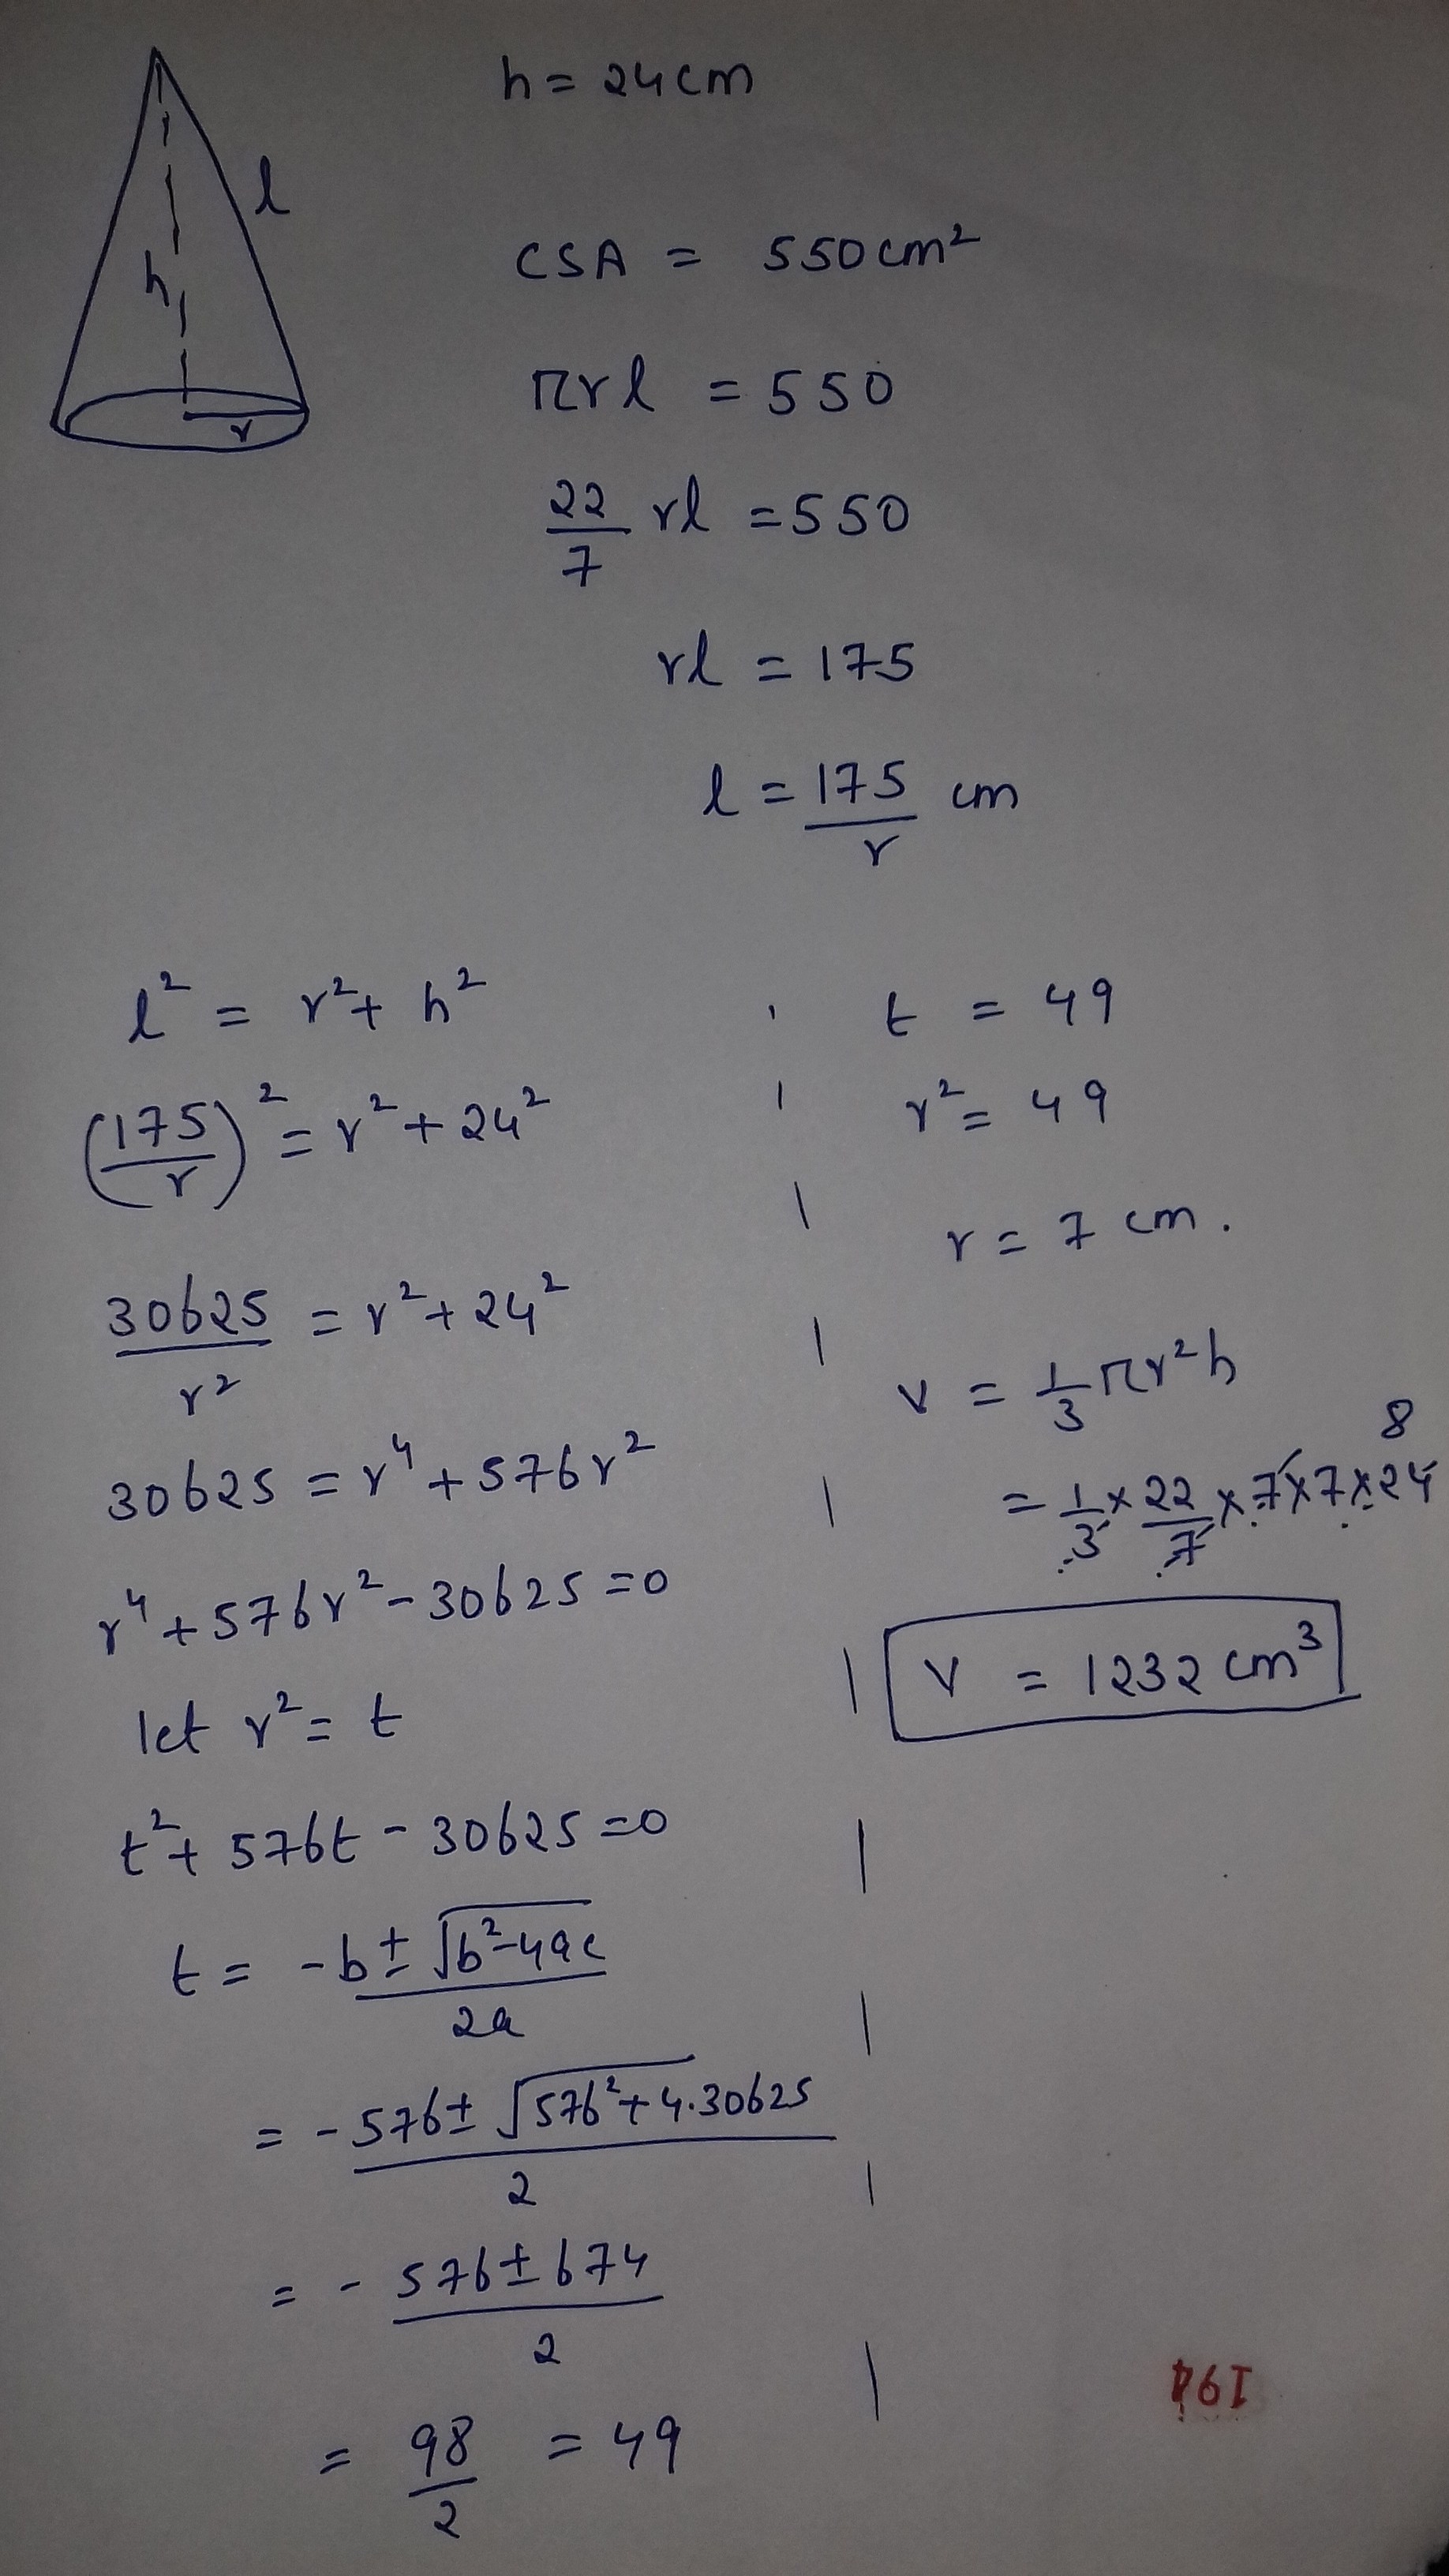 h = 24cm
l
h
r
CSA = 550cm²
πrl = 550
22/7 rl = 550
rl = 175
l = 175/r cm
l² = r² + h²
(175/r)² = r² + 24²
30625/r² = r² + 24²
30625 = r⁴ + 576r²
r⁴ + 576r² - 30625 = 0
let r² = t
t² + 576t - 30625 = 0
t = -b ± √b²-4ac / 2a
= -576 ± √576² + 4.30625 / 2
= -576 ± 674 / 2
= 98/2 = 49
t = 49
r² = 49
r = 7 cm.
v = 1/3 πr²h
8
= 1/3 × 22/7 × 7×7×24
V = 1232 cm³
194